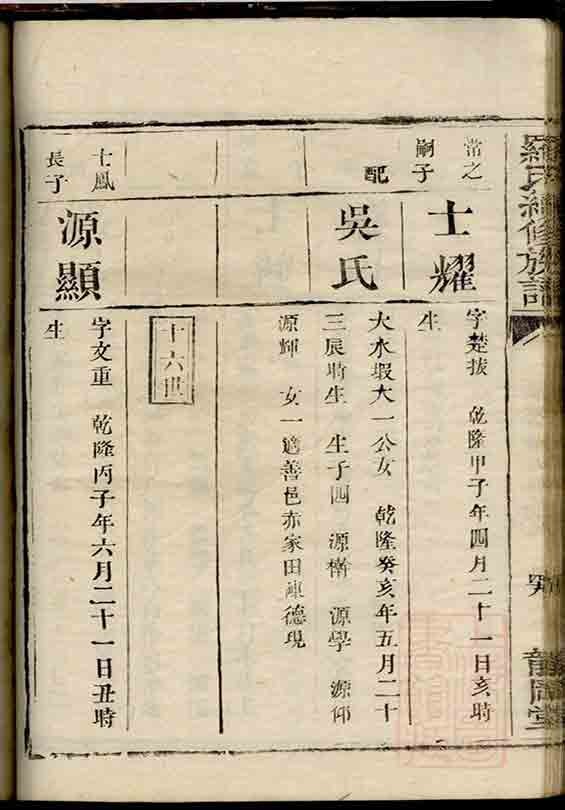 羅氏續修族譜
常之
嗣子
士耀
字楚拔　乾隆甲子年四月二十一日亥時
生
配
吳氏
大水塅大一公女　乾隆癸亥年五月二十
三辰時生　生子四　源　源學　源仰
源輝　女一適善邑赤家田陳德現
十六世
士鳳
長子
源顯
字文重　乾隆丙子年六月二十一日丑時
生